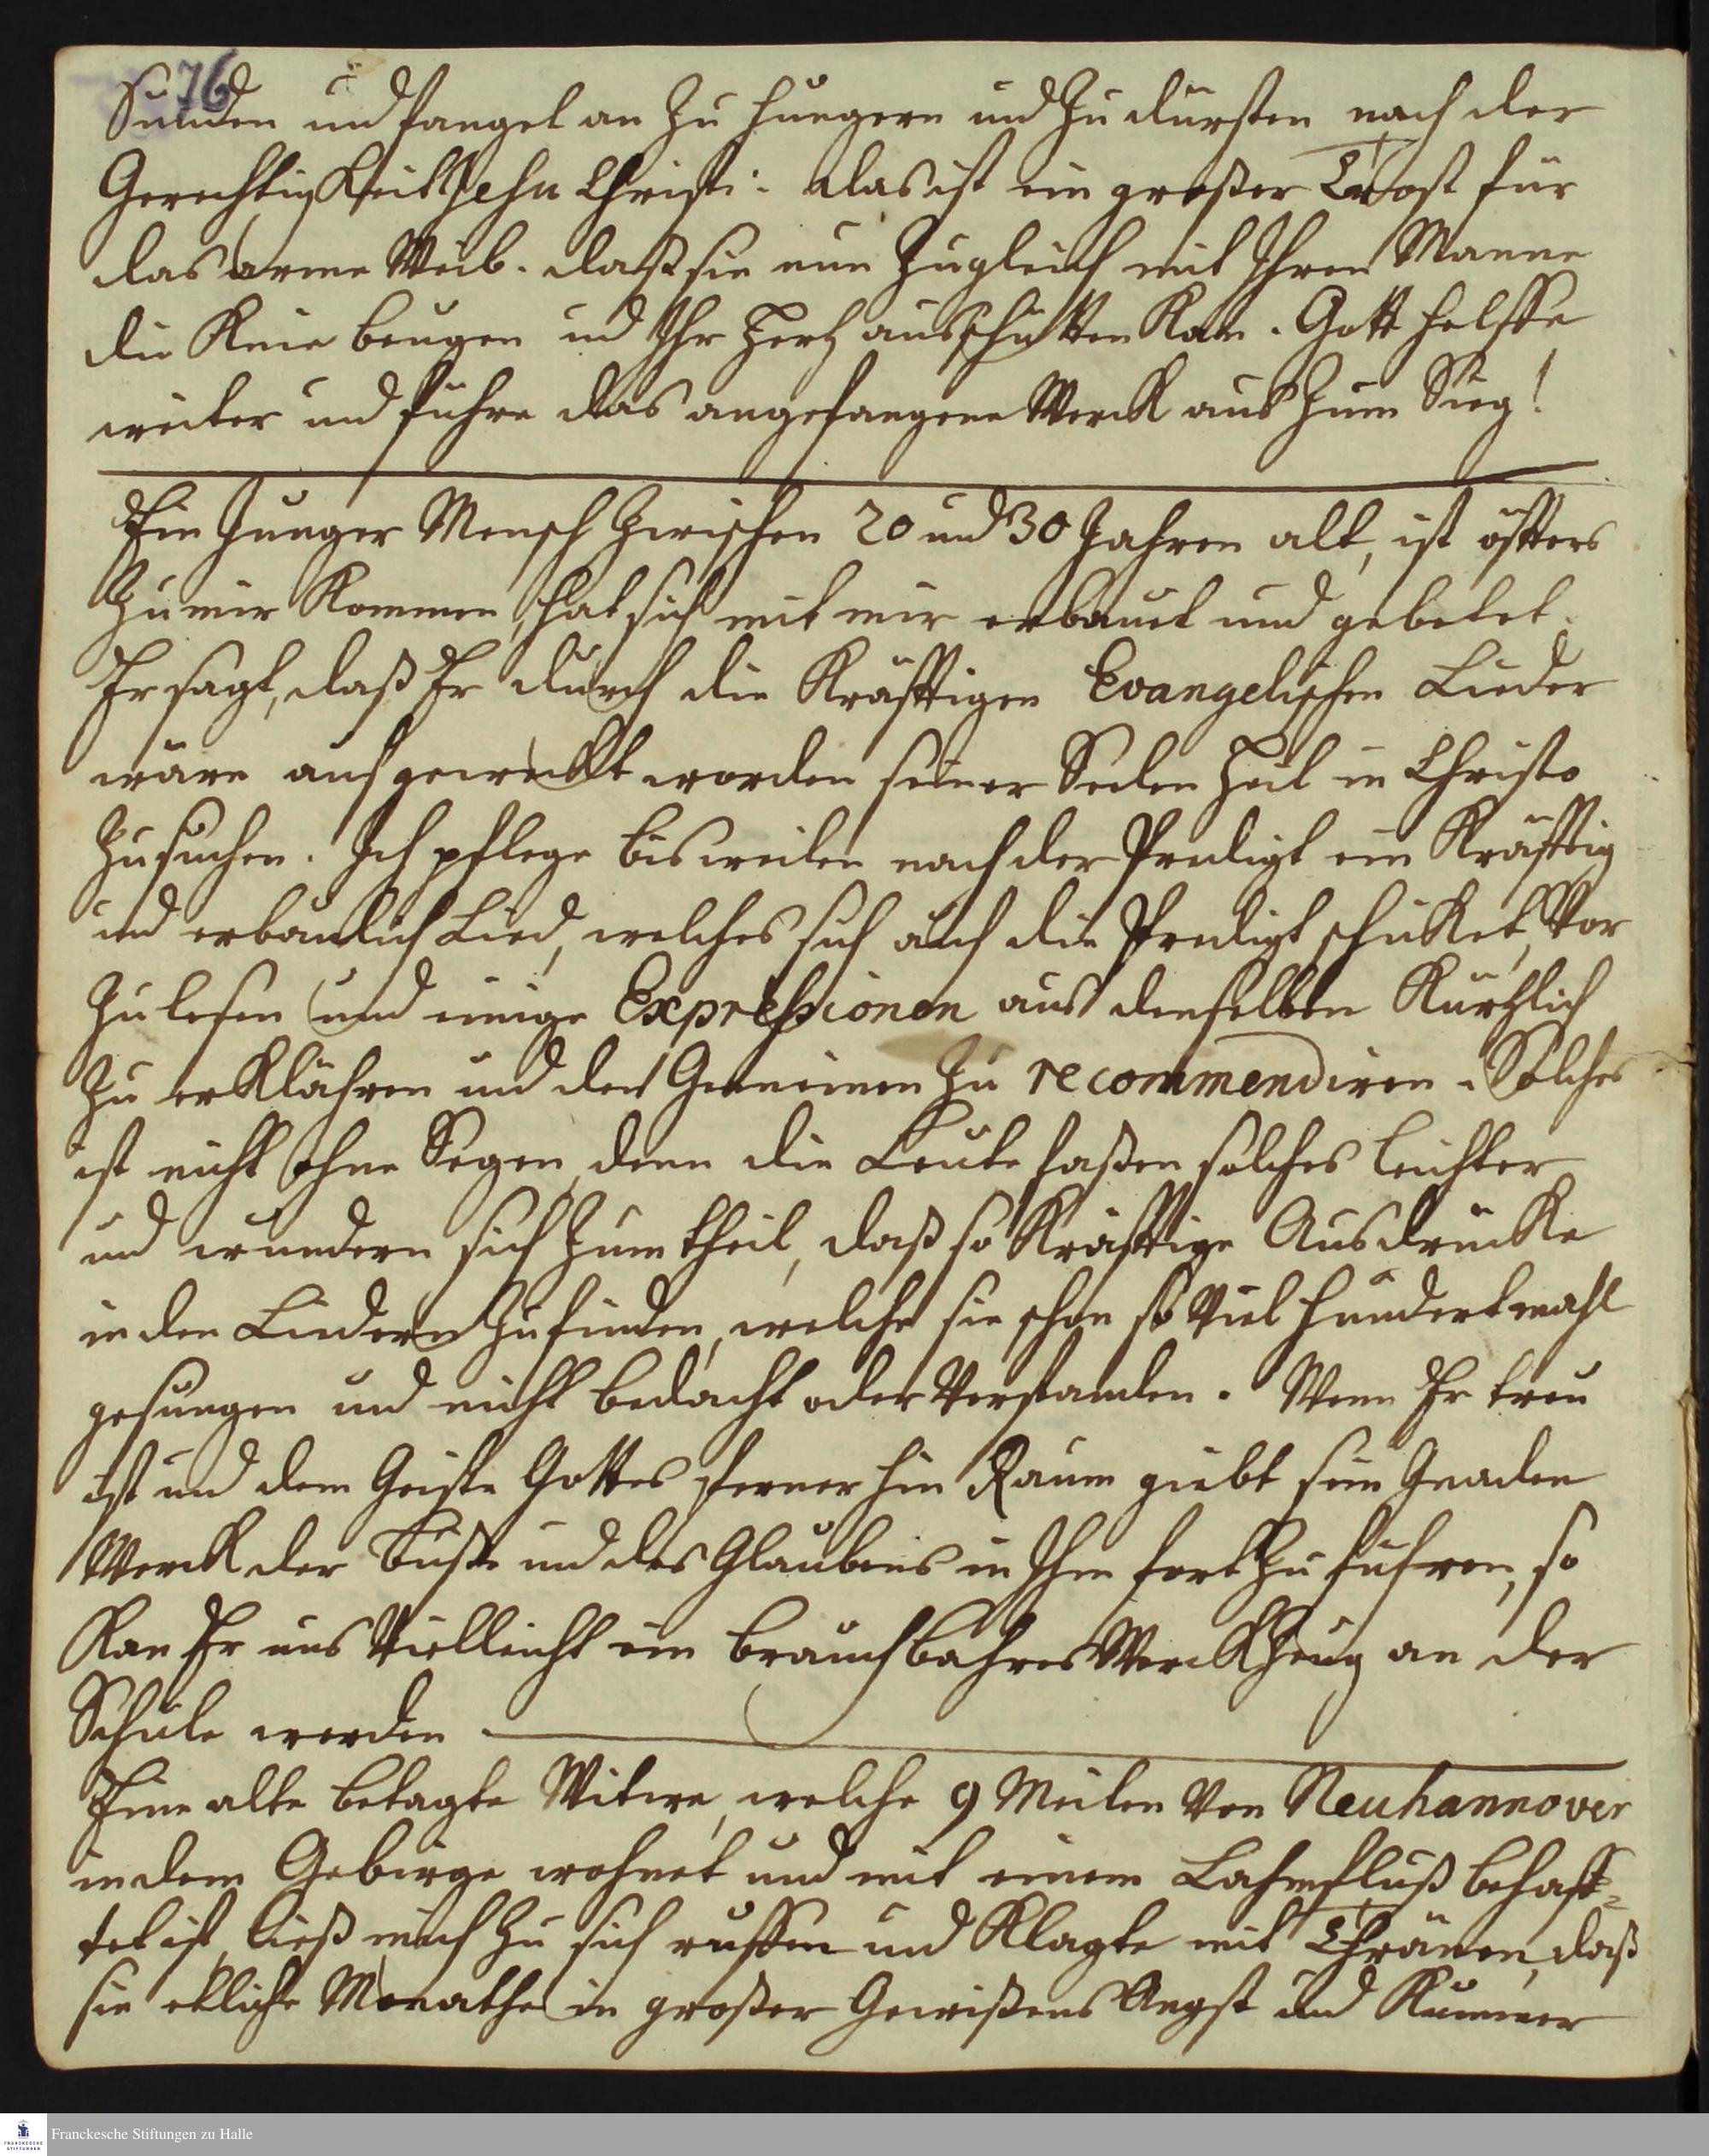 76
Sünden und fänget an zu hungern und zu dürsten nach der
Gerechtigkeit Jesu Christi: das ist ein großer Trost für
das arme Weib. daß sie nun zugleich mit Ihren Manne
die Knie beugen und Ihr Hertz ausschütten kan. Gott helffe
weiter und führe das angefangene Werck aus zum Sieg!
Ein Junger Mensch zwischen 20 und 30 Jahren alt, ist öffters
zu mir kommen, hat sich mit mir erbauet und gebetet.
Er sagt, daß Er durch die kräfftigen Evangelischen Lieder
wäre aufgeweckt worden seiner Seelen Heil in Christo
zu suchen. Ich pflege bisweilen nach der Predigt ein kräfftig
und erbaulich Lied, welches sich auf die Predigt schicket, vor
zu lesen und einige Expressionen aus denselben kürtzlich
zu erklähren und den Gemeinen zu recommendiren. Solches
ist nicht ohne Segen, denn die Leute faßen solches leichter
und wundern sich zum theil, daß so kräfftige Ausdrücke
in den Liedern zu finden, welche sie schon so viel hundertmahl
gesungen und nicht bedacht oder verstanden. Wenn Er treu
ist und dem Geiste Gottes ferner hin Raum giebt sein Gnaden
Werck der Buße und des Glaubens in Ihm fortzuführen, so
kan Er uns vielleicht ein brauchbahres Werckzeug an der
Schule werden.
Eine alte betagte Witwe, welche 9 Meilen von Neuhannover
in dem Gebirge wohnet und mit einem Lahmfluß behaff-
tet ist, ließ mich zu sich ruffen und klagte mit Thränen, daß
sie etliche Monathe in großer Gewißens Angst und Kummer
Franckesche Stiftungen zu Halle